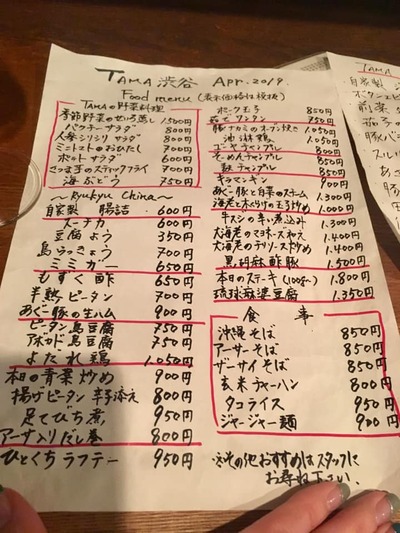 TAMA 渋谷 Apr. 2019.
Food menu (表示価格は税抜)
TAMAの野菜料理
季節野菜のせいろ蒸し 1,500円
パクチーサラダ 800円
人参シリシリ サラダ 800円
ミニトマトのおひたし 700円
ポテトサラダ 600円
さつま芋のスティックフライ 700円
海ぶどう 750円
～Ryukyu China～
自家製 腸詰 600円
スーチカ 600円
豆腐よう 350円
島らっきょう 700円
ミミガー 650円
もずく酢 650円
半熟ピータン 700円
あぐー豚の生ハム 900円
ピータン島豆腐 750円
アボカド島豆腐 750円
よだれ鶏 1,050円
本日の青菜炒め 900円
揚げピータン 辛子添え 800円
足てびち煮 950円
アーサ入りだし巻 800円
ひとくちラフテー 950円
ポーク玉子 850円
茹でワンタン 750円
豚ナカミのオーブン焼き 1,050円
油淋鶏 1,050円
ゴーヤチャンプル 850円
そーめんチャンプル 850円
麩チャンプル 850円
チキンナンキン 900円
あぐー豚と白菜のスチーム 1,300円
海老と木くらげの玉子炒め 1,000円
牛スジの辛い煮込み 1,300円
大海老のマヨネーズ和え 1,400円
大海老のチリソース炒め 1,400円
黒胡麻酢豚 1,500円
本日のステーキ (100g〜) 1,800円
琉球麻婆豆腐 1,350円
食事
沖縄そば 850円
アーサーそば 850円
ザーサイそば 850円
玄米チャーハン 800円
タコライス 950円
ジャージャー麺 900円
※その他おすすめはスタッフに
お尋ね下さい。
TAMA
自家製
前菜
茄子の
豚バ
スルリ